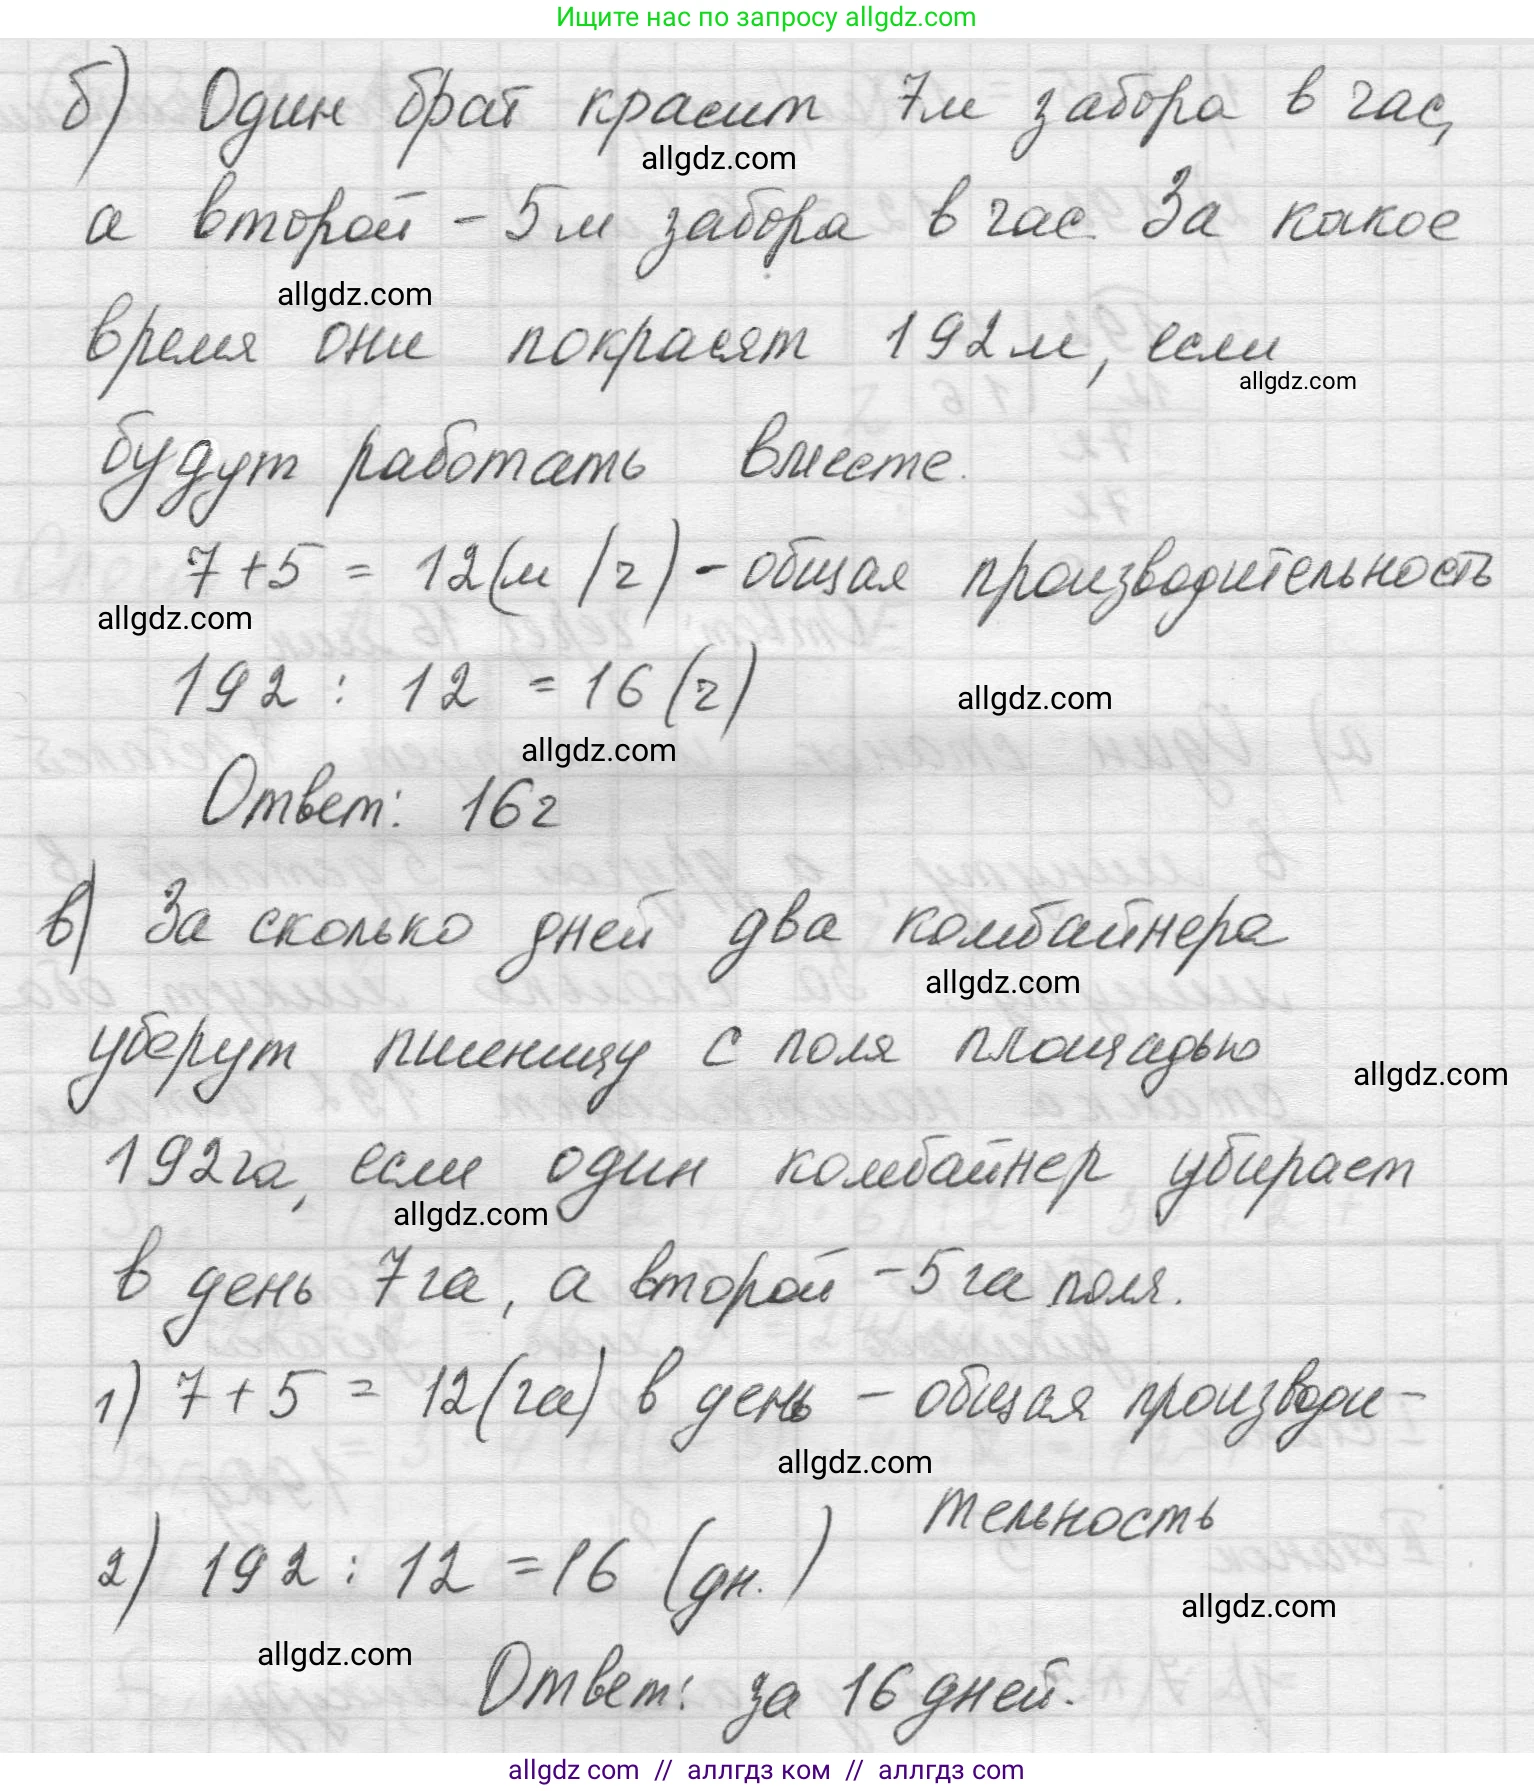 Ищите нас по запросу allgdz.com
б) Один брат красит 7м забора в час,
allgdz.com
а второй - 5м забора в час. За какое
allgdz.com
время они покрасят 192м, если
allgdz.com
будут работать вместе.
7+5 = 12(м/ч) - общая производительность
allgdz.com
192 : 12 = 16(ч)
allgdz.com
allgdz.com
Ответ: 16ч
в) За сколько дней два комбайнера
allgdz.com
уберут пшеницу с поля площадью
allgdz.com
192га, если один комбайнер убирает
allgdz.com
в день 7га, а второй - 5га поля.
1) 7+5 = 12(га) в день - общая производи-
allgdz.com
тельность
2) 192 : 12 = 16 (дн.)
allgdz.com
allgdz.com
Ответ: за 16 дней.
allgdz com // аллгдз ком // аллгдз com